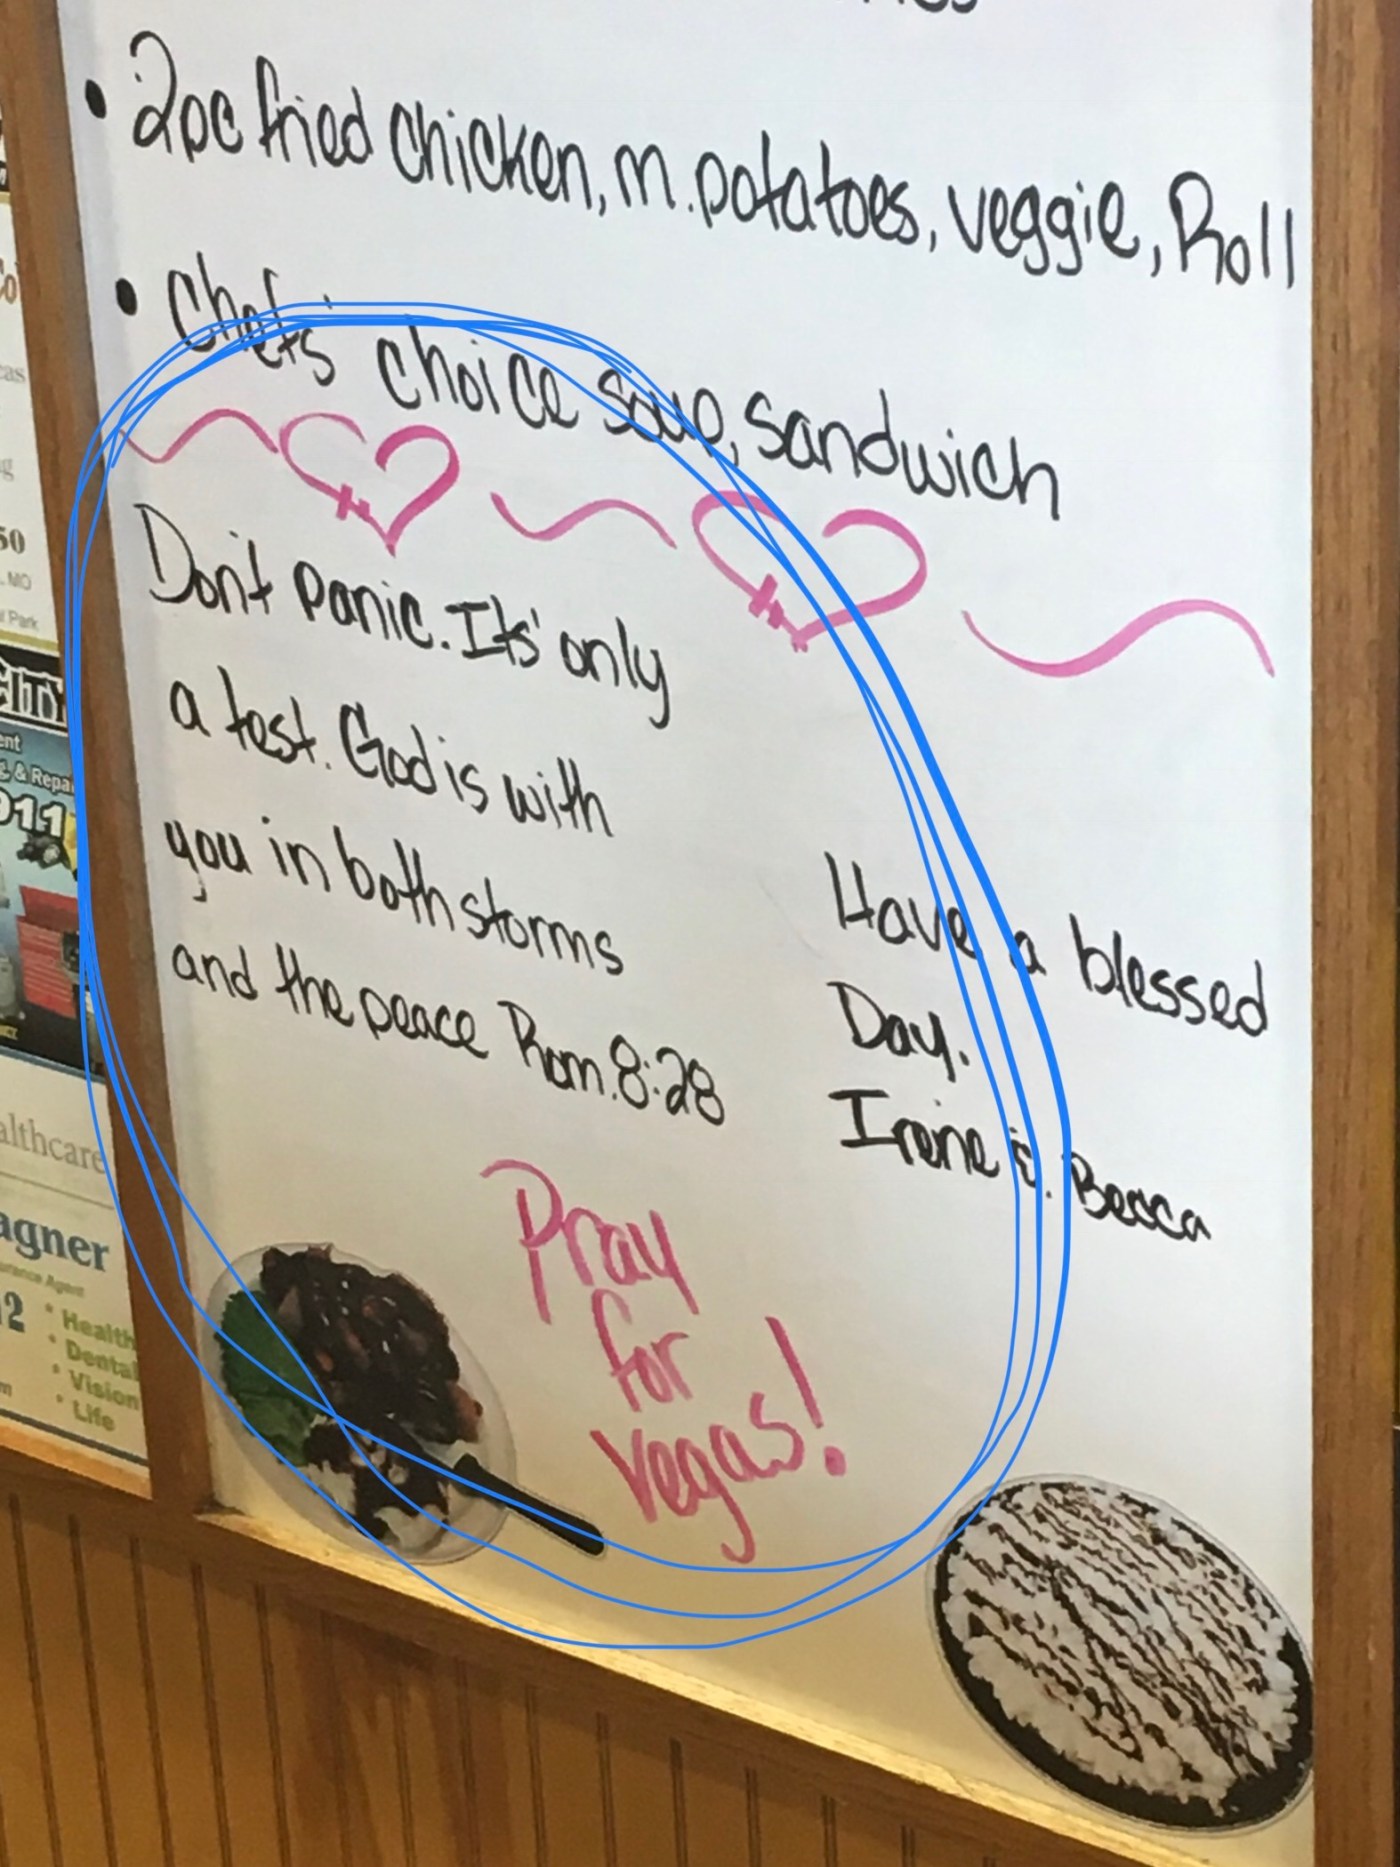 • 2pc fried chicken, m. potatoes, veggie, Roll
• Chefs' choice soup, sandwich
Don't panic. Its' only
a test. God is with
you in both storms
and the peace Rom. 8:28
Have a blessed
Day.
Irene & Becca
Pray
for
Vegas!
50
MO
Park
CITY
& Repa
911
althcare
agner
urance Agent
2
• Health
• Dental
• Vision
• Life